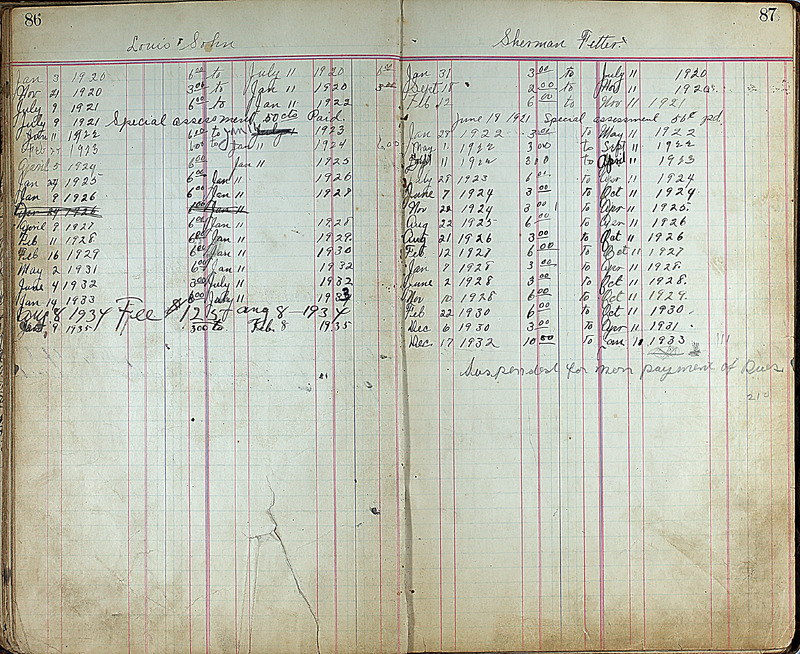 86
Louis Sohn
Jan 3 1920 6 00 to July 11 1920 6 00
Nov 21 1920 3 00 to Jan 11 1920 3 00
July 9 1921 6 00 to Jan 11 1922
July 9 1921 Special assessment 50 cts Paid
Jan 11 1922 6 00 to July 11 1923
1923 6 00 to Jan 11 1924 6 00
April 5 1924 6 00 Jan 11 1925
Jan 24 1925 6 00 Jan 11 1926
Jan 9 1926 6 00 Jan 11 1927
Apr 24 1926 Jan 11
April 9 1927 6 00 Jan 11 1928
Feb 11 1928 6 00 Jan 11 1929
Feb 16 1929 6 00 Jan 11 1930
May 2 1931 6 00 Jan 11 1932
June 4 1932 3 00 July 11 1932
Jan 14 1933 6 00 July 11 1933
Aug 8 1934 Fee $12 Aug 8 1934
9 1935 3 00 to Feb 8 1935
87
Sherman Fetter
Jan 31 3 00 to July 11 1920
Sept 18 2 00 to Nov 11 1920
Feb 12 6 00 to Nov 11 1921
June 19 1921 Special assessment 50c pd
Jan 28 1922 3 00 to May 11 1922
May 1 1922 3 00 to Sept 11 1922
Sept 11 1922 3 10 to April 11 1923
July 28 1923 6 00 to Apr 11 1924
June 7 1924 3 00 to Oct 11 1924
Nov 22 1924 3 00 to Apr 11 1925
Aug 22 1925 6 00 to Apr 11 1926
Aug 21 1926 3 00 to Oct 11 1926
Feb 12 1927 6 00 to Oct 11 1927
Jan 7 1928 3 00 to Apr 11 1928
June 2 1928 3 00 to Oct 11 1928
Nov 10 1928 6 00 to Oct 11 1929
Feb 22 1930 6 00 to Oct 11 1930
Dec 6 1930 3 00 to Apr 11 1931
Dec 17 1932 10 00 to Jan 11 1933
Suspended for non payment of Dues
210